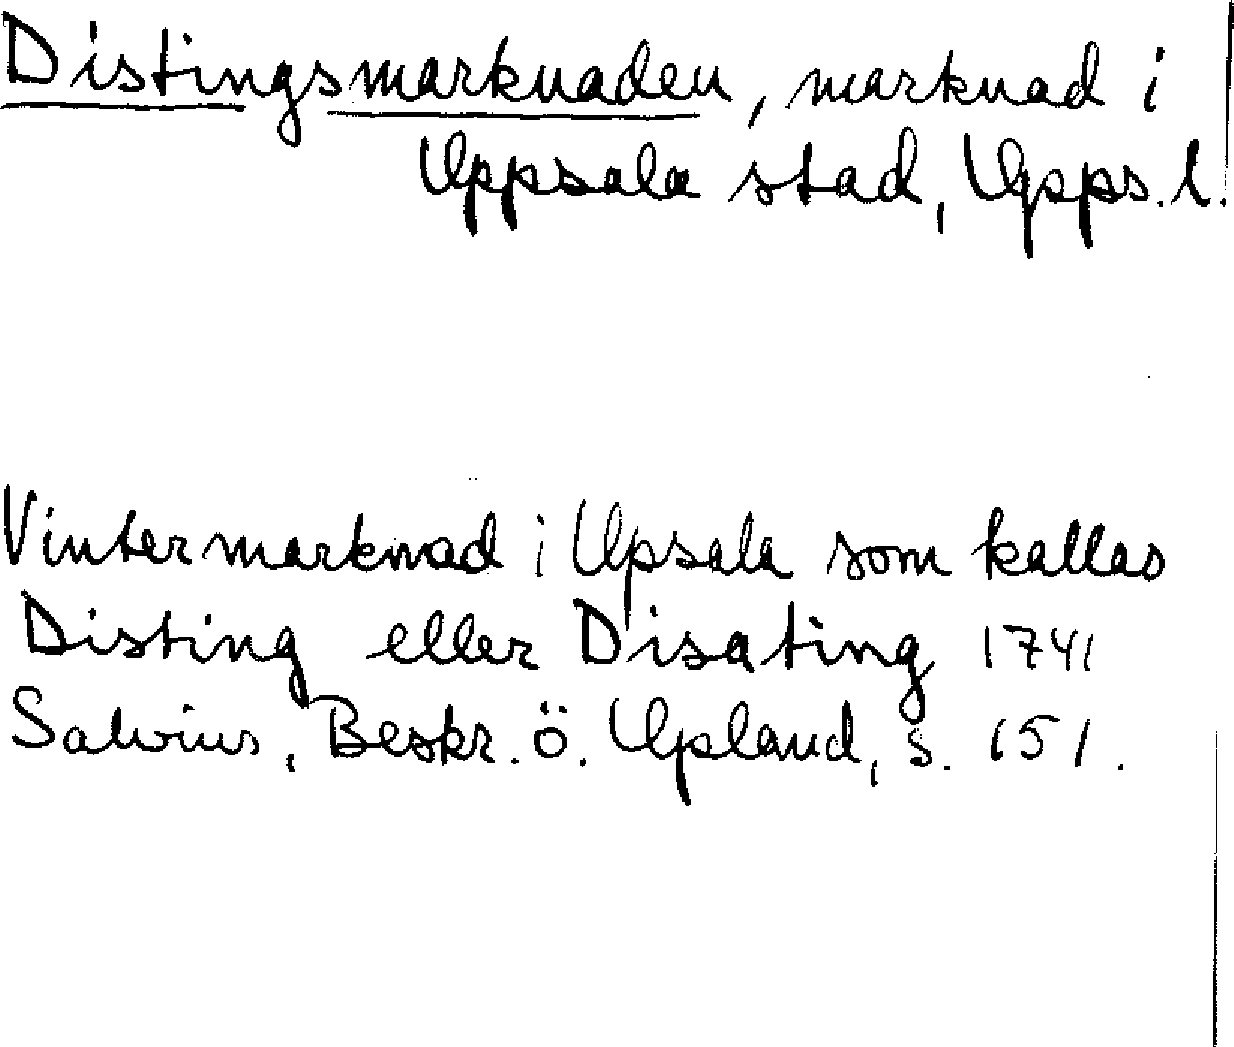 Distingsmarknaden, marknad i
Uppsala stad, Upps. l.
Vintermarknad i Upsala som kallas
Disting eller Disating 1741
Salvius, Beskr. ö. Upland, s. 151.